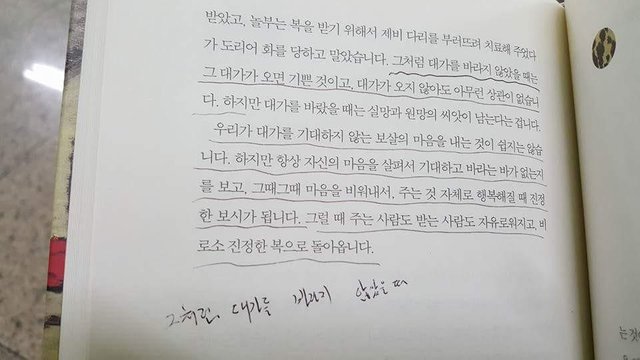 받았고, 놀부는 복을 받기 위해서 제비 다리를 부러뜨려 치료해 주었다
가 도리어 화를 당하고 말았습니다. 그처럼 대가를 바라지 않았을 때는
그 대가가 오면 기쁜 것이고, 대가가 오지 않아도 아무런 상관이 없습니
다. 하지만 대가를 바랐을 때는 실망과 원망의 씨앗이 남는다는 겁니다.
우리가 대가를 기대하지 않는 보살의 마음을 내는 것이 쉽지는 않습
니다. 하지만 항상 자신의 마음을 살펴서 기대하고 바라는 바가 없는지
를 보고, 그때그때 마음을 비워내서, 주는 것 자체로 행복해질 때 진정
한 보시가 됩니다. 그럴 때 주는 사람도 받는 사람도 자유로워지고, 비
로소 진정한 복으로 돌아옵니다.
그처럼 대가를 바라지 않았을 때
는 것이